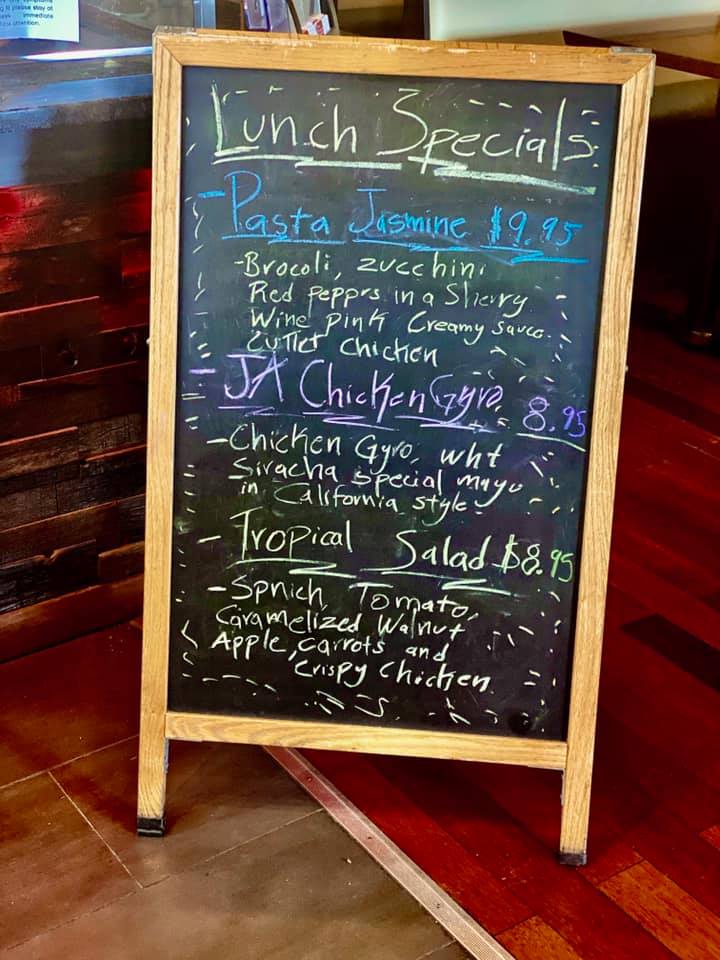 stay at
immediate
attention.
Lunch Specials
- Pasta Jasmine $9.95
-Brocoli, zucchini
Red pepprs in a Sherry
Wine pink Creamy sauce.
Cutlet Chicken
- JA Chicken Gyro. 8.95
- Chicken Gyro, wht
Siracha special mayo
in California style.
- Tropical Salad $8.95
- Spnich Tomato,
Caramelized Walnut
Apple, carrots and
Crispy Chicken.